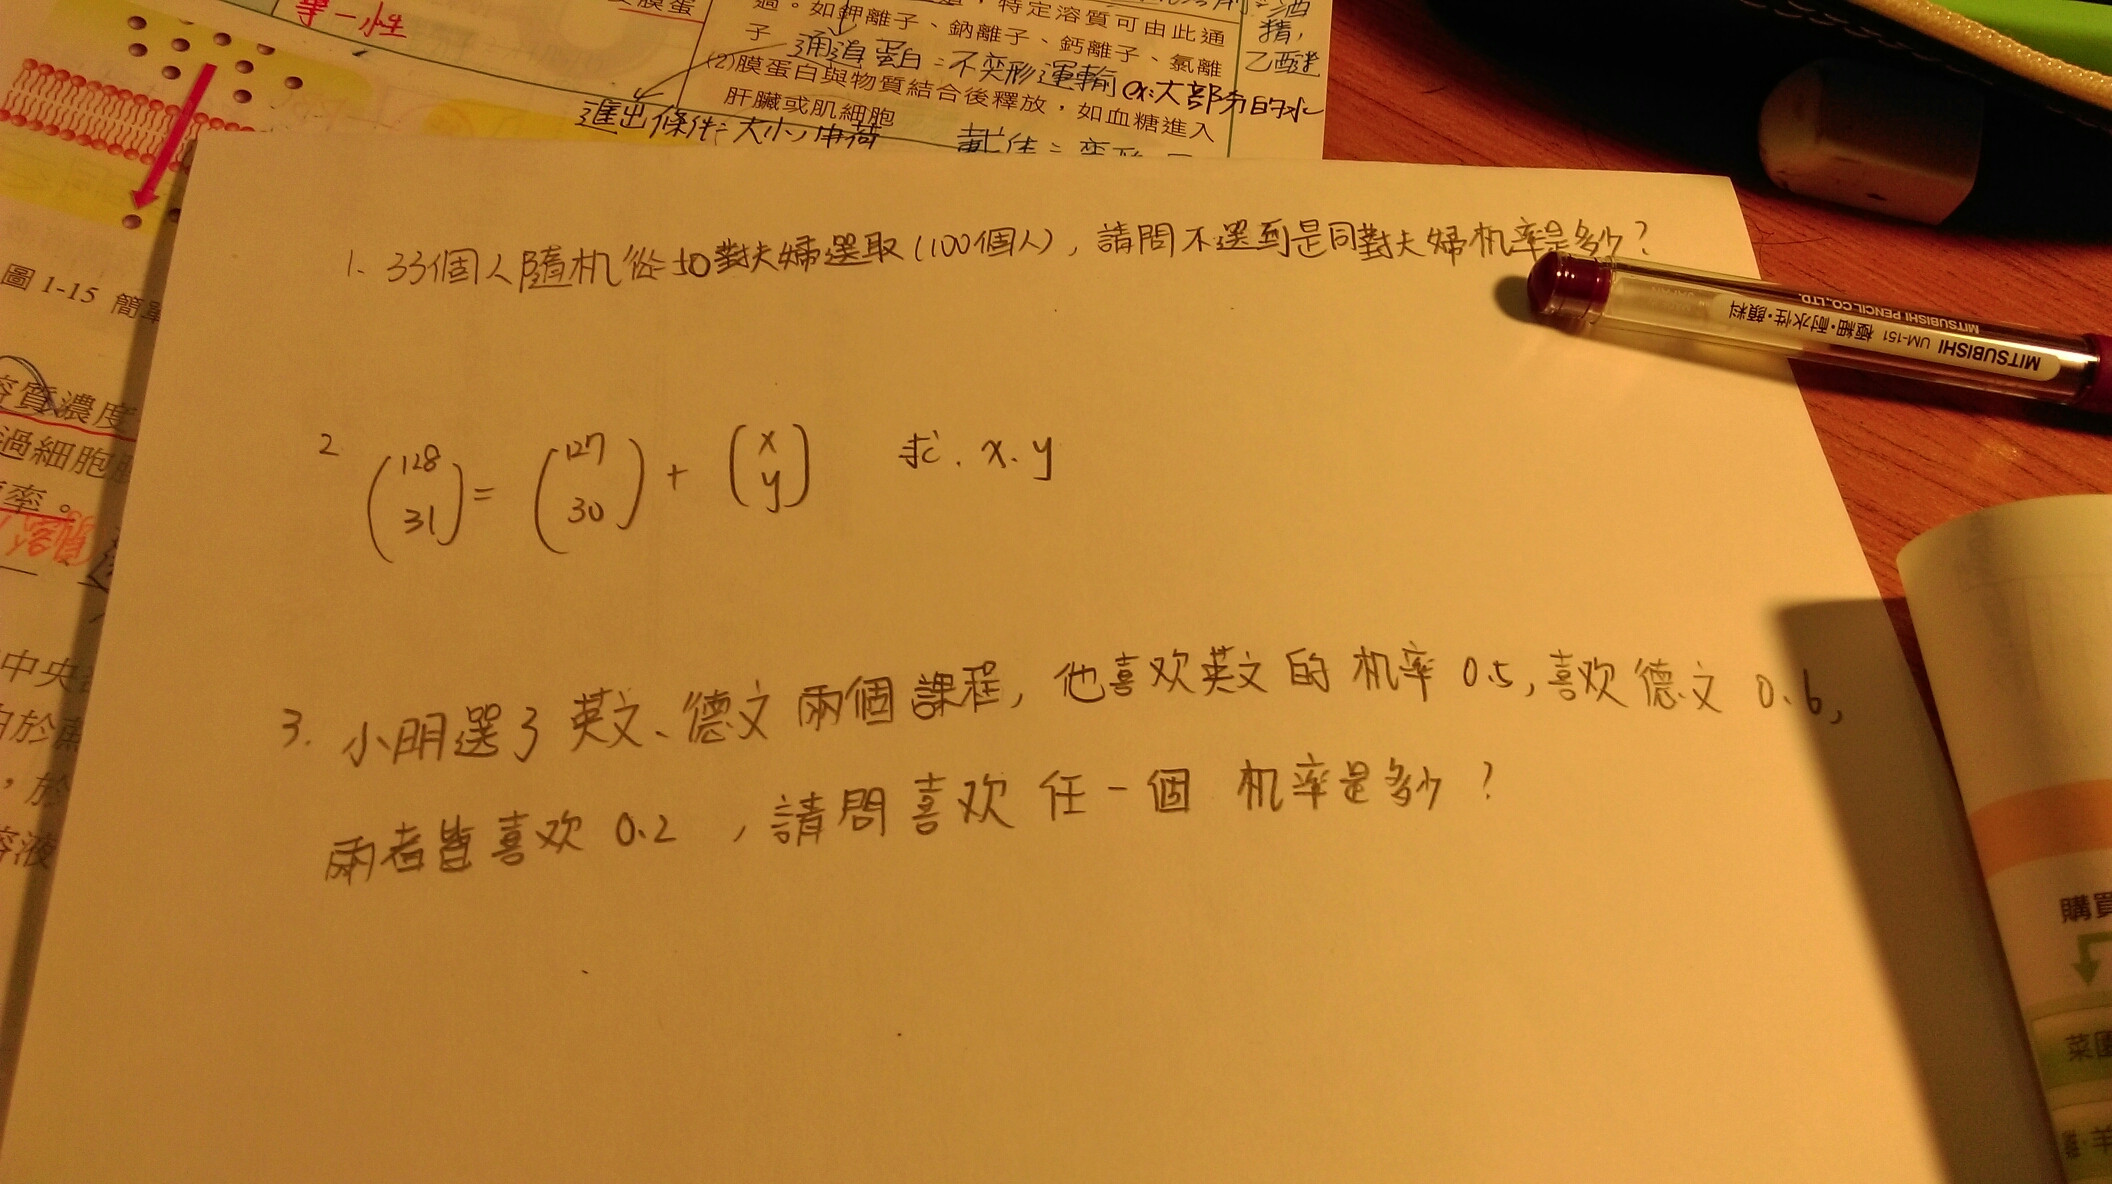 等一小性
膜蛋
特定溶質可由此通
過。如鉀離子、鈉離子、鈣離子、氯離
子
通道蛋白=不变形運輸 ex:大部分的水
(2)膜蛋白與物質結合後釋放,如血糖進入
肝臟或肌細胞
進出條件:大小、电荷
酒
精,
乙醚
圖 1-15 簡單
溶質濃度
過細胞膜
率。
中央
於
溶液
1. 33個人隨机從50對夫婦選取(100個人),請問不選到是同對夫婦机率是多少?
2 (128 31) = (127 30) + (x y) 求.x.y
3. 小明選了英文、德文兩個課程,他喜欢英文的机率0.5,喜欢德文0.6,
兩者皆喜欢0.2 ,請問喜欢任一個 机率是多少?
MITSUBISHI UM-151 極細·耐水性·顔料
MITSUBISHI PENCIL CO.,LTD.
JAPAN
購買
菜
羊